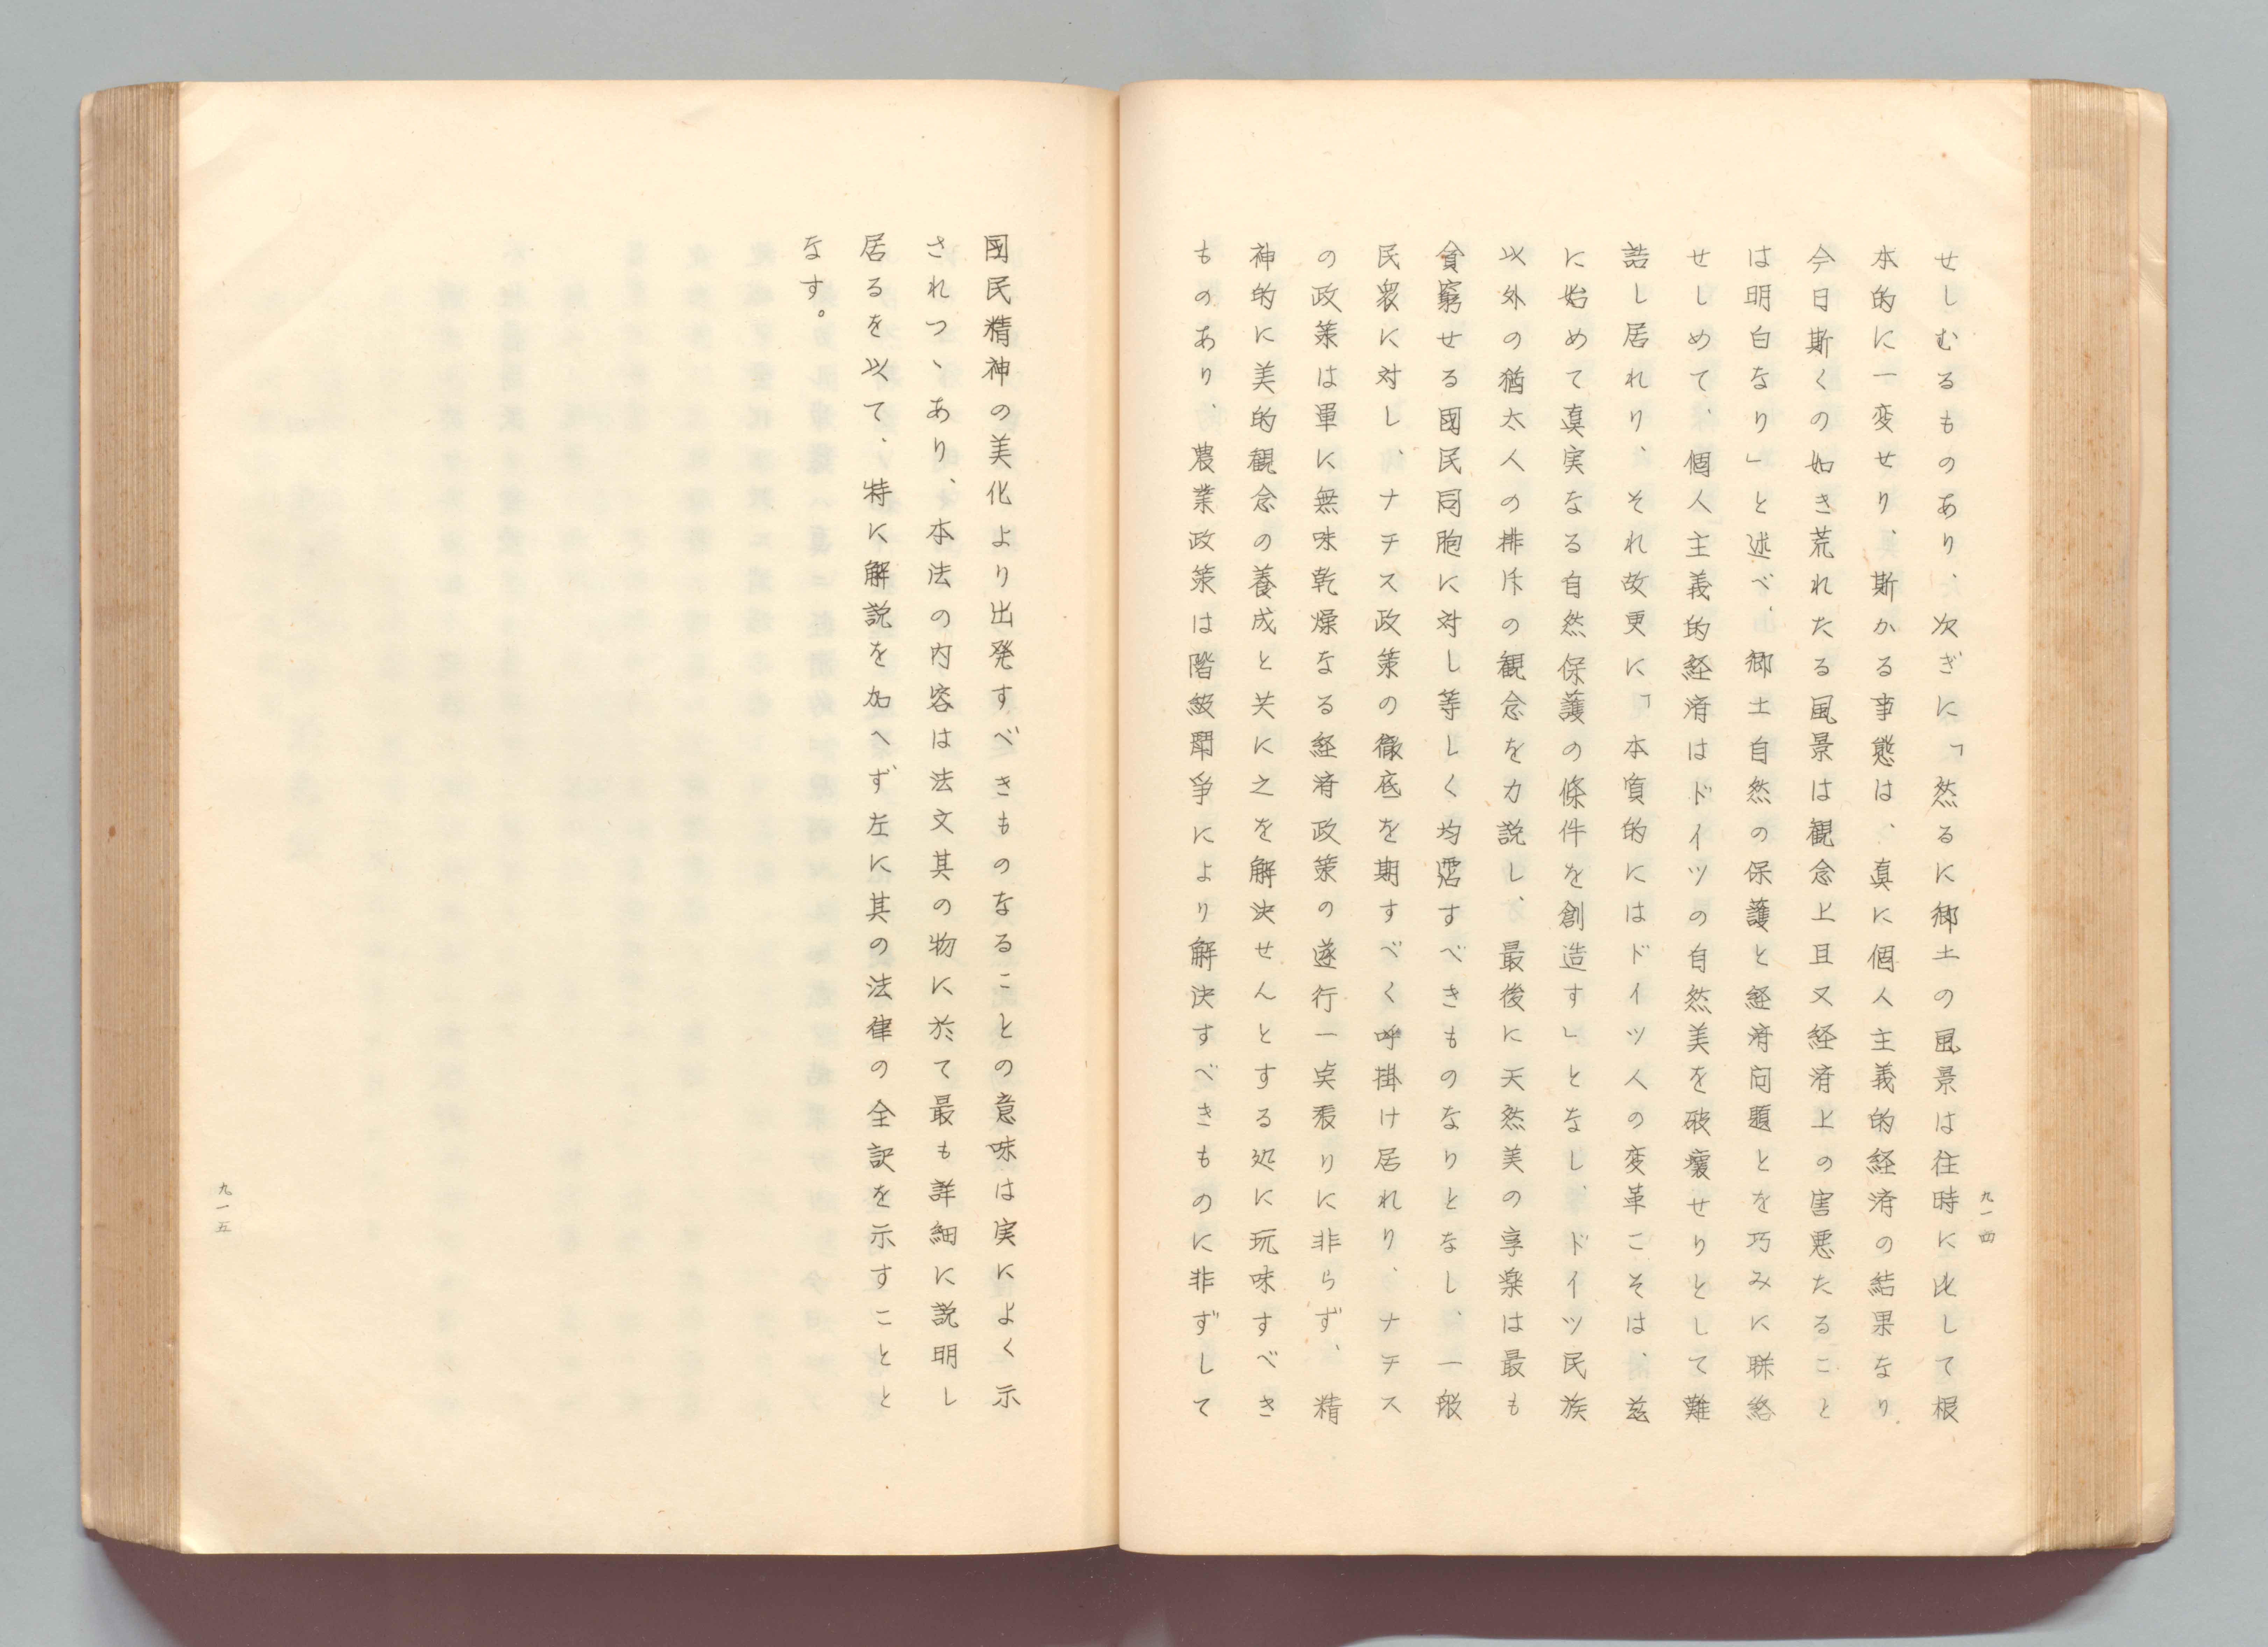 九一四
せしむるものあり、次ぎに「然るに郷土の風景は往時に比して根
本的に一変せり、斯かる事態は、真に個人主義的経済の結果なり
今日斯くの如き荒れたる風景は観念上且又経済上の害悪たること
は明白なり」と述べ、郷土自然の保護と経済問題とを巧みに聯絡
せしめて、個人主義的経済はドイツの自然美を破壊せりとして難
詰し居れり、それ故更に「本質的にはドイツ人の変革こそは、茲
に始めて真実なる自然保護の條件を創造す」となし、ドイツ民族
以外の猶太人の排斥の観念を力説し、最後に天然美の享楽は最も
貧窮せる國民同胞に対し等しく均霑すべきものなりとなし、一般
民衆に対し、ナチス政策の徹底を期すべく呼掛け居れり、ナチス
の政策は單に無味乾燥なる経済政策の遂行一点張りに非らず、精
神的に美的観念の養成と共に之を解決せんとする処に玩味すべき
ものあり、農業政策は階級闘爭により解決すべきものに非ずして
国民精神の美化より出発すべきものなることの意味は実によく示
されつゝあり、本法の内容は法文其の物に於て最も詳細に説明し
居るを以て、特に解説を加へず左に其の法律の全訳を示すことと
なす。
九一五